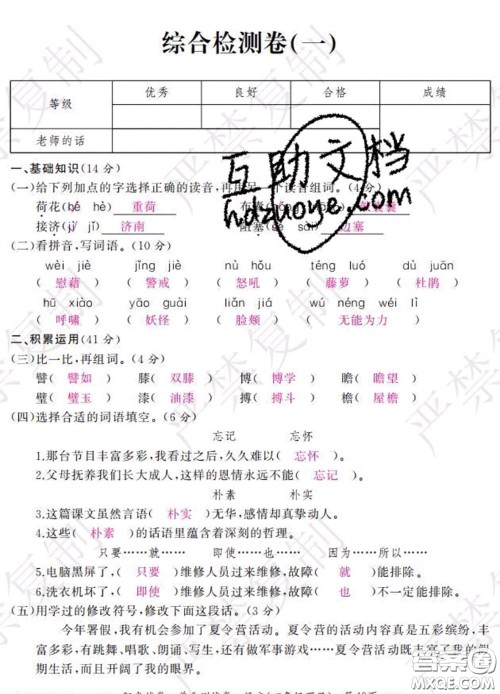 综合检测卷(一)
等级 优秀 良好 合格 成绩
老师的话
一、基础知识(14 分)
(一)给下列加点的字选择正确的读音,再用 一个读音组词。(4 分)
荷花(hé hè) 重荷 布
接济(jì jǐ) 济南 阻塞(sè sāi) 边塞
(二)看拼音,写词语。(10 分)
wèi jiè jǐng jiè nù hǒu téng luó dù juān
( 慰藉 ) ( 警戒 ) ( 怒吼 ) ( 藤萝 ) ( 杜鹃 )
hū xiào yāo guài liǎn jiá wú néng wéi lì
( 呼啸 ) ( 妖怪 ) ( 脸颊 ) ( 无能为力 )
二、积累运用(41 分)
(三)比一比,再组词。(4 分)
譬( 譬如 ) 膝( 双膝 ) 博( 博学 ) 瞻( 瞻望 )
璧( 璧玉 ) 漆( 油漆 ) 搏( 搏斗 ) 檐( 屋檐 )
(四)选择合适的词语填空。(6 分)
忘记 忘怀
1.那台节目丰富多彩,我看过之后,久久难以( 忘怀 )。
2.父母抚养我们长大成人,这样的恩情永远不能( 忘记 )。
朴素 朴实
3.这篇课文虽然言语( 朴实 )无华,感情却真挚动人。
4.这些( 朴素 )的话语里蕴含着深刻的哲理。
只要……就…… 即使……也…… 因为……所以……
5.电脑黑屏了,( 只要 )维修人员过来维修,故障( 就 )能排除。
6.洗衣机坏了,( 即使 )维修人员过来维修,故障( 也 )不一定能排除。
(五)用学过的修改符号,修改下面这段话。(3 分)
今年暑假,我有机会参加了夏令营活动。夏令营的活动内容真是五彩缤纷,丰
富多彩,有跳舞、唱歌、朗诵、写生,还有做军事游戏……夏令营丰富了我的暑
期生活,而且开阔了我的眼界。
互助文档
hdzuoye.com
严禁复制
答案圈
MXQE.COM